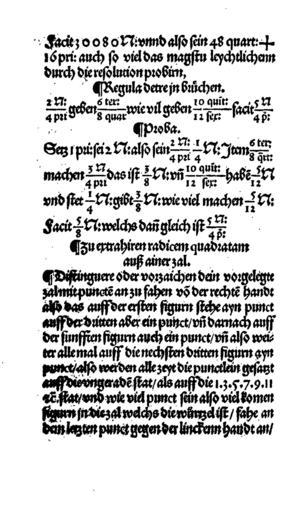 Facit 30080 N: vnnd also sein 48 quart: +
16 pri: auch so viel das magstu leychtlichenn
durch die resolution probirn,
¶Regula detre in brüchen.
2 N: / 4 pri geben 6 ter: / 8 quar wie vil geben 10 quit: / 12 sex: facit 5 N: / 4 p:
¶Proba.
Setz 1 pri: sei 2 N: also sein 2 N: / 4 pri 1 / 4 N: Item 6 ter: / 8 qr:
machen 3 N: / 4 pri das ist 3 / 8 N: vñ 10 quit: / 12 sex: habẽ 5 N: / 12
vnd stet 1 / 4 N: gibt 3 / 8 N: wie viel machen 5 N: / 12:
Facit 5 / 8 N: welchs dañ gleich ist 5 N: / 4 p:
¶Zu extrahiren radicem quadratam
auß ainer zal.
¶Distinguere oder vorzaichen dein vorgelegte
zal mit punctẽ an zu fahen võ der rechtẽ handt
also das auff der ersten figurn stehe ayn punct
auff der dritten aber ein punct/ vñ darnach auff
der funfften figurn auch ein punct/ vñ also wei-
ter alle mal auff die nechsten dritten figurn ayn
punct/ also werden alle zeyt die punctlein gesatzt
auff die vngeradẽ stat/ als auff die 1.3.5.7.9.11
stat/ vnd wie viel punct sein also viel komen
figurn in die zal welchs die würtzel ist/ fahe an
dem letzten punct gegen der lincken handt an/